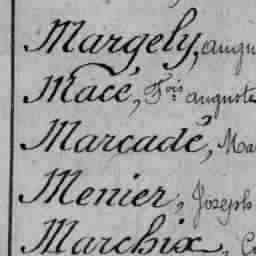 Margely, augu
Macé, Fois auguste
Marcadé, Ma
Menier, Joseph
Marchix, C